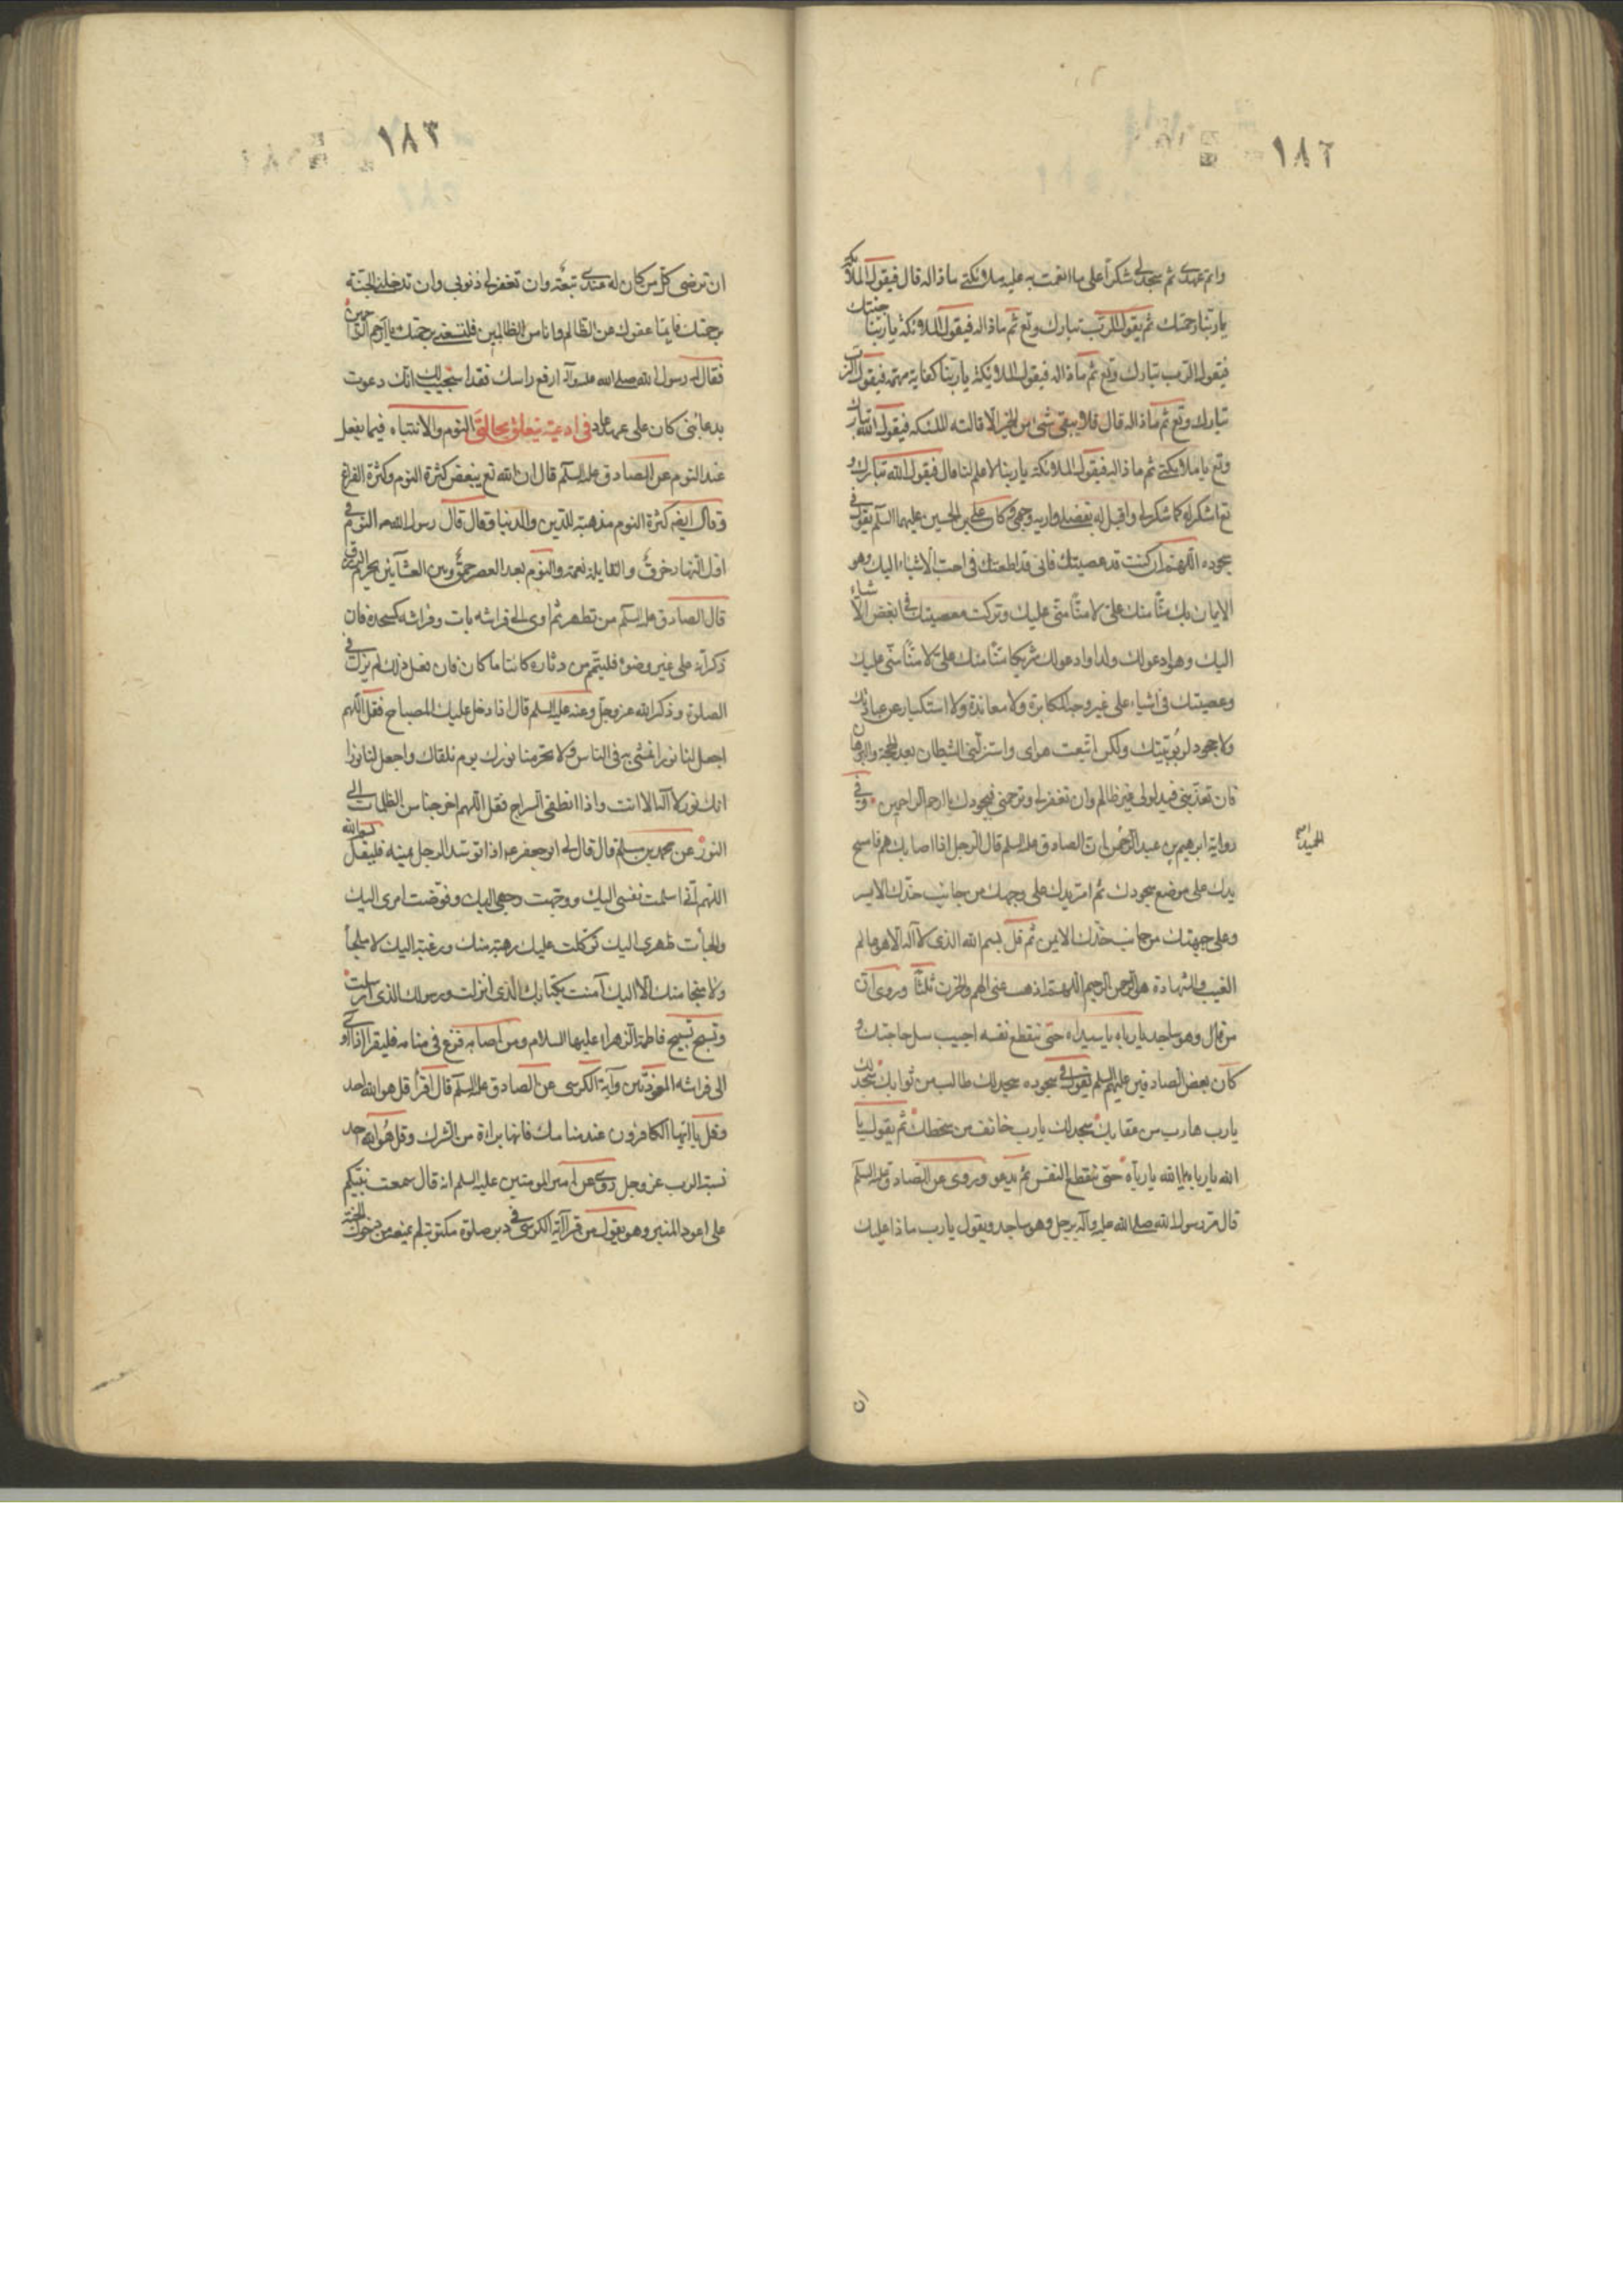 ١٨٢
واتم عهدى ثم سجد لى شكرا على ما انعمت به عليه ملائكتى ماذا له قال فيقول الملائكة
يا ربنا رحمتك ثم يقول الرب تبارك وتع ثم ماذا له فيقول الملائكة يا ربنا جنتك
فيقول الرب تبارك وتع ثم ماذا له فيقول الملائكة يا ربنا كفاية مهمه فيقول الرب
تبارك وتع ثم ماذا له قال فلا يبقى شئ من الخير الا قالته الملئكه فيقول الله تبارك
وتع يا ملائكتى ثم ماذا له فيقول الملائكة يا ربنا لا علم لنا قال فيقول الله تبارك و
تع اشكر له كما شكر لى واقبل له بفضلى واريه وجهى وكان على بن الحسين عليهما السلم يقول فى
سجوده اللهم ان كنت قد عصيتك فانى قد اطعتك فى احب الاشياء اليك وهو
الايمان بك منّا منك علىّ لا منّا منّى عليك وتركت معصيتك فى ابغض الاشياء
اليك وهو ادعو لك ولدا وادعو لك شريكا منّا منك علىّ لا منّا منّى عليك
وعصيتك فى اشياء على غير وجه المكابرة ولا معاندة ولا استكبار عن عبادتك
ولا جحود لربوبيتك ولكن اتبعت هواى واستزلنى الشيطان بعد الحجة والبرهان
فان تعذبنى فبذنوبى غير ظالم وان تغفر لى وترحمنى فبجودك يا ارحم الراحمين وفى
رواية ابرهيم بن عبد الحميد ان الصادق عليه السلم قال لرجل اذا اصابك هم فامسح
يدك على موضع سجودك ثم امر يدك على وجهك من جانب خدك الايسر
وعلى جبهتك من جانب خدك الايمن ثم قل بسم الله الذى لا اله الا هو عالم
الغيب والشهادة هو الرحمن الرحيم اللهم اذهب عنى الهم والحزن ثلثا وروى ان
من قال وهو ساجد يا رباه يا سيداه حتى ينقطع نفسه اجيب سل حاجتك و
كان بعض الصادقين عليهم السلم يقول فى سجوده سجد لك طالب من ثوابك سجد لك
يا رب هارب من عقابك سجد لك يا رب خائف من سخطك ثم يقول يا
الله يا رباه يا الله يا رباه حتى ينقطع النفس ثم يدعو وروى عن الصادق عليه السلم
قال مر رسول الله صلى الله عليه وآله برجل وهو ساجد ويقول يا رب ماذا عليك
ان
١٨٣
ان ترضى كل من كان له عندى تبعة وان تغفر لى ذنوبى وان تدخلنى الجنة
برحمتك فانما عفوك عن الظالم وانا من الظالمين فلتسعنى رحمتك يا ارحم الراحمين
فقال له رسول الله صلى الله عليه وآله ارفع راسك فقد استجيب لك انك دعوت
بدعاء نبى كان على عهد عاد فى ادعية تتعلق بحالتى النوم والانتباه فيما يفعل
عند النوم عن الصادق عليه السلم قال ان الله تع يبغض كثرة النوم وكثرة الفراغ
وقال ايضا كثرة النوم مذهبة للدين والدنيا وقال قال رسول الله ص النوم فى
اول النهار خرق والقايلة نعمة والنوم بعد العصر حمق وبين العشائين يحرم الرزق
قال الصادق عليه السلم من تطهر ثم اوى الى فراشه بات وفراشه كمسجده فان
ذكر انه على غير وضوء فليتيمم من دثاره كائنا ما كان فان فعل ذلك لم يزل فى
الصلوة وذكر الله عز وجل وعنه عليه السلم قال اذا دخل عليك المصباح فقل اللهم
اجعل لنا نورا نمشى به فى الناس ولا تحرمنا نورك يوم نلقاك واجعل لنا نورا
انك نور لا اله الا انت واذا انطفى السراج فقل اللهم اخرجنا من الظلمات الى
النور عن محمد بن مسلم قال قال لى ابو جعفر ع اذا توسد الرجل يمينه فليقل بسم الله
اللهم انى اسلمت نفسى اليك ووجهت وجهى اليك وفوضت امرى اليك
والجأت ظهرى اليك توكلت عليك رهبة منك ورغبة اليك لا ملجأ
ولا منجا منك الا اليك آمنت بكتابك الذى انزلت وبرسولك الذى ارسلت
وتسبح تسبيح فاطمة الزهراء عليها السلام ومن اصابه فزع فى منامه فليقرا اذا اوى
الى فراشه المعوذتين وآية الكرسى عن الصادق عليه السلم قال اقرأ قل هو الله احد
وقل يا ايها الكافرون عند منامك فانها براءة من الشرك وقل هو الله احد
نسبة الرب عز وجل روى عن امير المومنين عليه السلم انه قال سمعت نبيكم
على اعواد المنبر وهو يقول من قرأ آية الكرسى فى دبر صلوة مكتوبة لم يمنعه من دخول الجنة